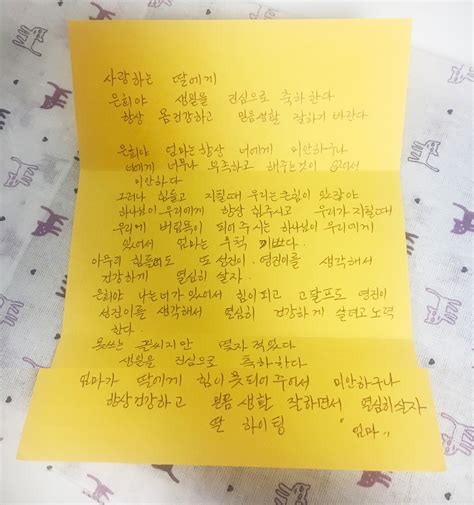 사랑하는 딸에게
은희야 생일을 진심으로 축하한다
항상 몸건강하고 믿음생활 잘하기 바란다
은희야 엄마는 항상 너에게 미안하구나
너에게 너무나 부족하고 해주는것이 없어서
미안하다
그러나 힘들고 지칠때 우리는 큰힘이 있잖아
하나님이 우리에게 항상 힘주시고 우리가 지칠때
우리에 버팀목이 되어주시는 하나님이 우리에게
있어서 엄마는 무척 기쁘다.
아무리 힘들어도 또 성진이. 영진이를 생각해서
건강하게 열심히 살자.
은희야 나는 너가 있어서 힘이되고 고달프도 영진이
성진이를 생각해서 열심히 건강하게 살려고 노력
한다.
못쓰는 글씨지만 몇자 적었다
생일을 진심으로 축하한다.
엄마가 딸에게 힘이 못되어주어서 미안하구나
항상건강하고 믿음생활 잘하면서 열심히살자
딸 하이팅 "엄마"